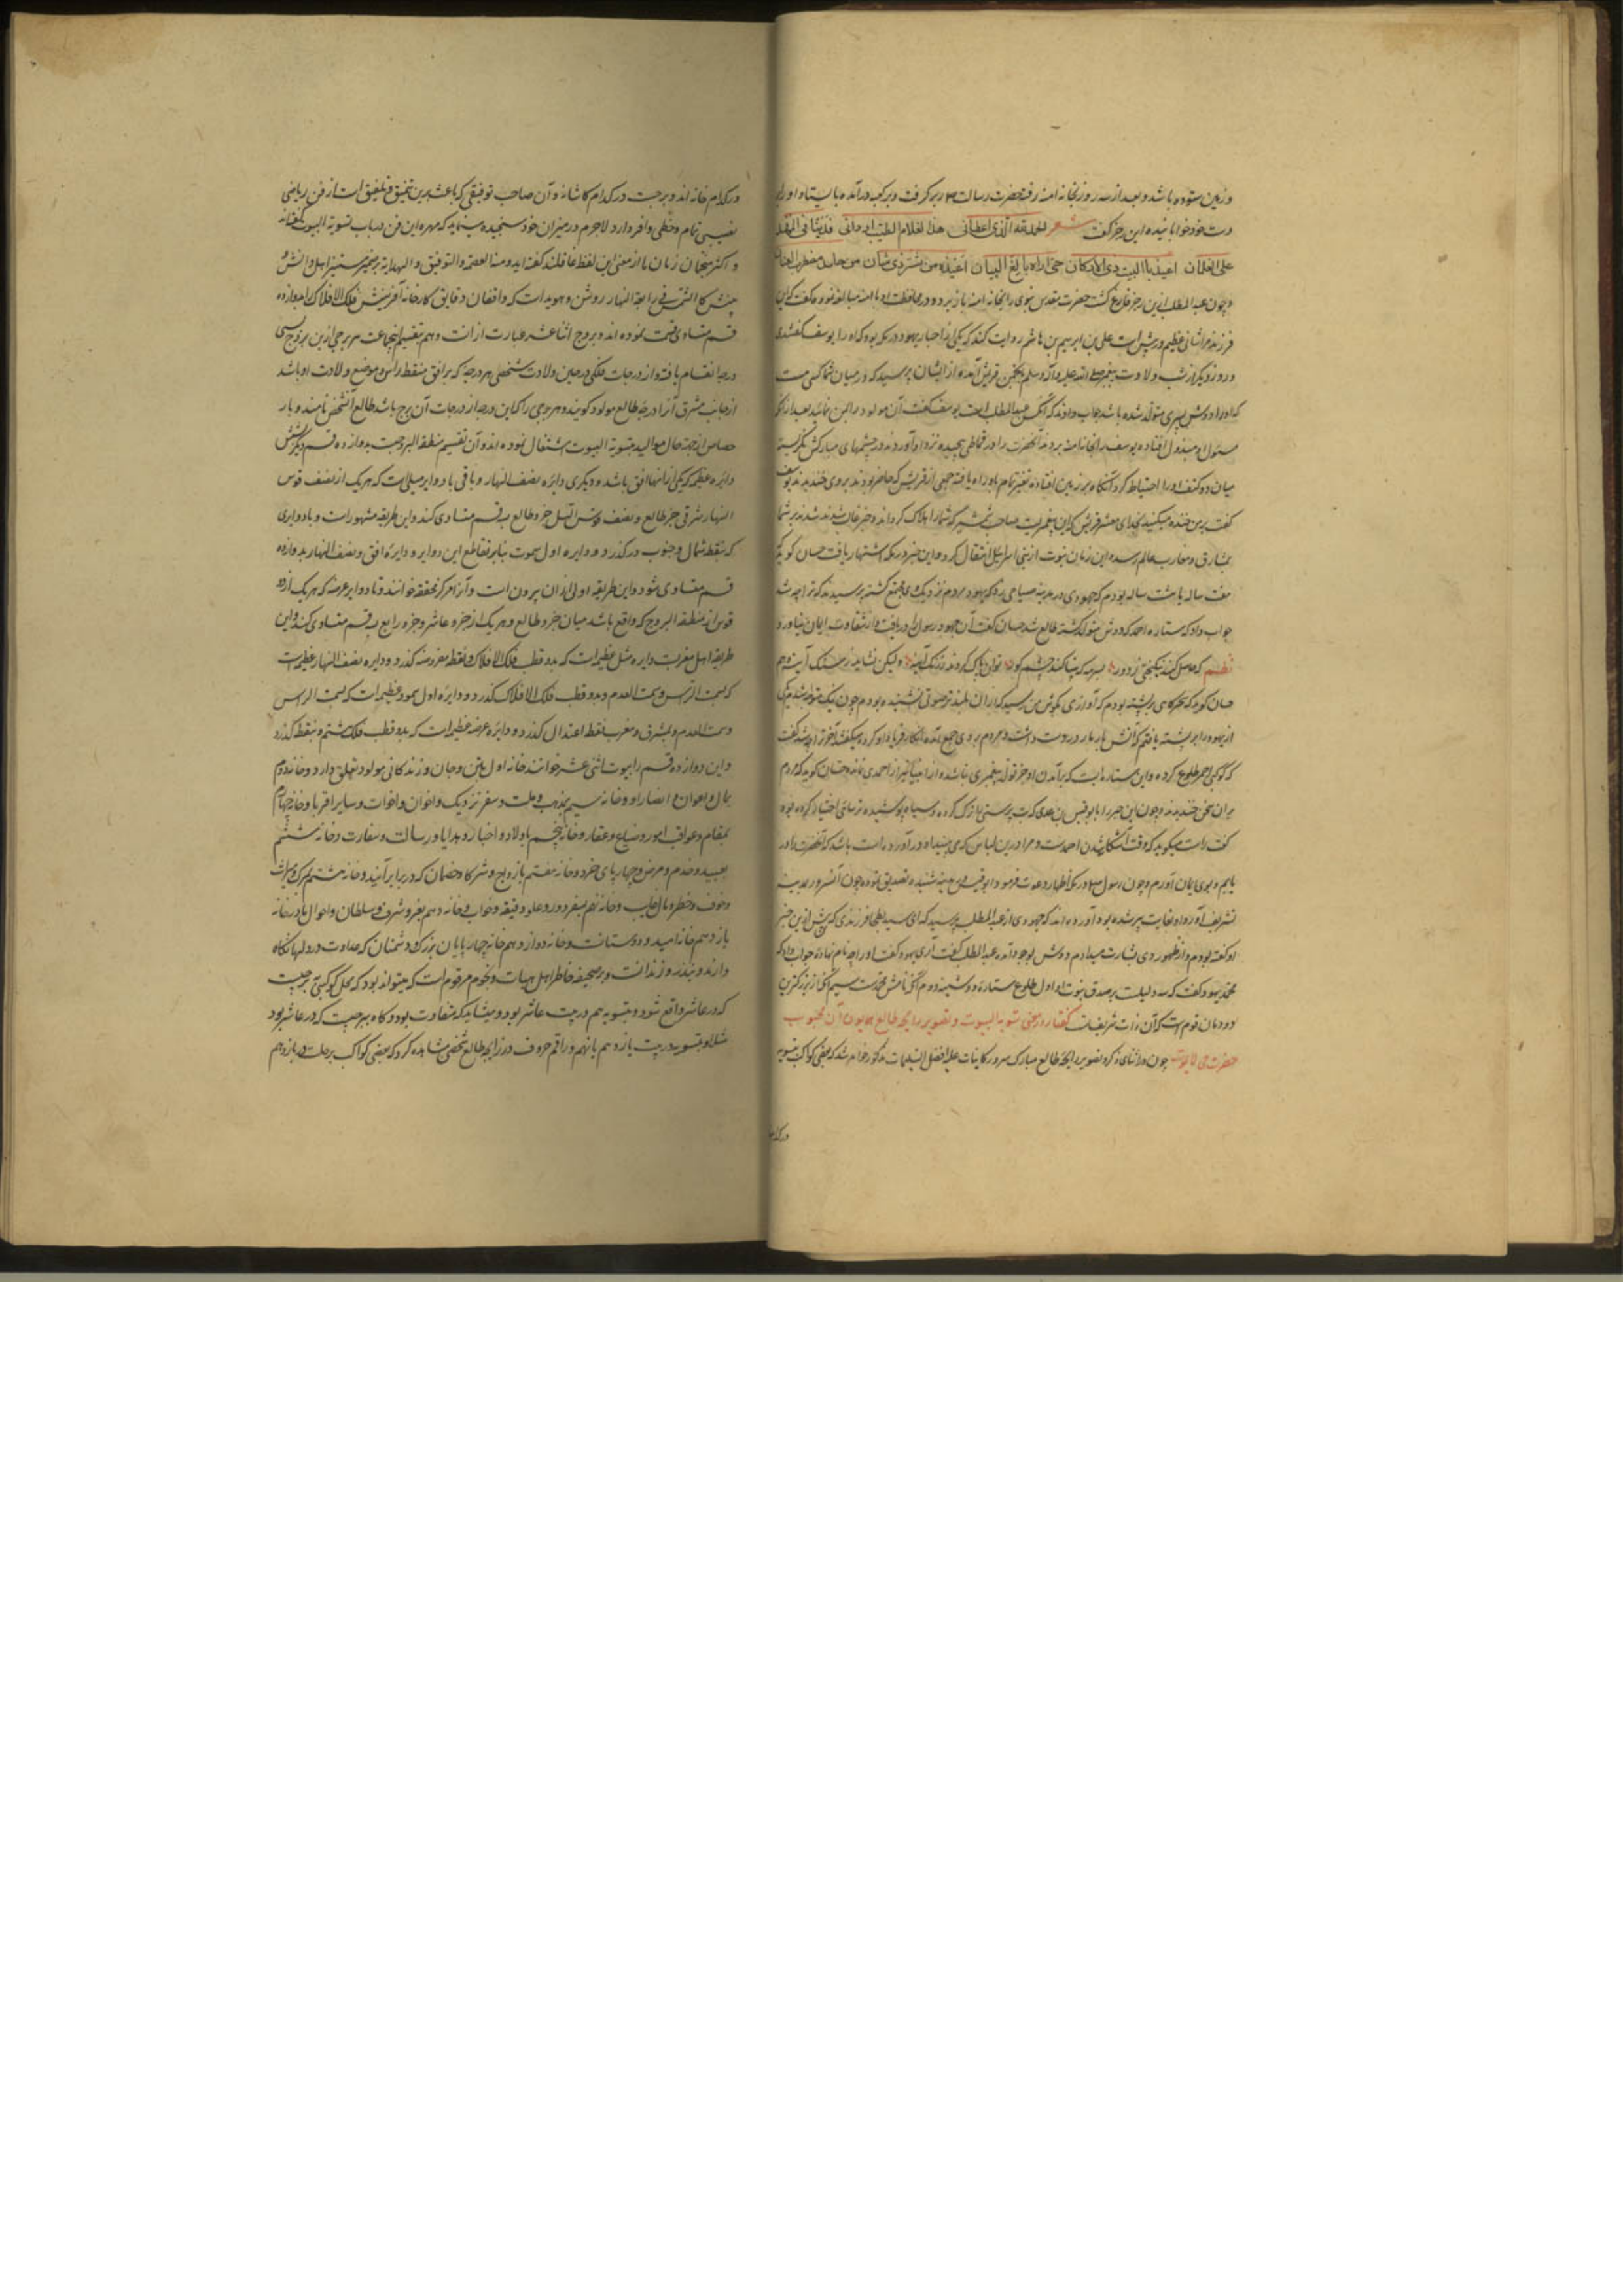 و زمین ستوده باشد و بعد از سه روز بخانه آمنه رفته حضرت رسالت را در بر گرفت و بدر کعبه درآمده بایستاد و او را بر
دست خود خوابانیده این رجز گفت شعر الحمد لله الذی اعطانی هذا الغلام الطیب الاردانی قد ساد فی المهد
علی الغلمان اعیذه بالبیت ذی الارکان حتی اراه بالغ البنیان اعیذه من شر ذی شنآن من حاسد مضطرب العنان
و چون عبد المطلب ازین رجز فارغ گشت حضرت مقدس نبوی را بخانه آمنه باز برد و در محافظت او با آمنه مبالغه نمود و گفت که این
فرزند مرا شانی عظیم در پیش است علی بن ابرهیم بن هاشم روایت کند که یکی از احبار یهود در مکه بود که او را یوسف گفتندی
و روز دیگر از شب ولادت پیغمبر صلی الله علیه و آله و سلم بانجمن قریش آمده از ایشان پرسید که در میان شما کسی هست
که او را دوش پسری متولد شده باشد جواب دادند که آنکس عبد المطلب است یوسف گفت آن مولود را بمن نمائید بعد از آنکه
مسئول او مبذول افتاده یوسف را بخانه آمنه بردند آنحضرت را در قماطی پیچیده نزد او آوردند و در چشمهای مبارکش نگریسته
میان دو کتف او را احتیاط کرد آنگاه بر زمین افتاده تغیر تمام باو راه یافته جمعی از قریش که حاضر بودند بر وی خندیدند یوسف
گفت برین خنده میکنید ای معشر قریش که این پیغمبریست صاحب شمشیر که شما را هلاک گرداند و خبر غالب شدن بر شما
بمشارق و مغارب عالم رسد و این زمان نبوت از بنی اسرائیل انتقال کرد و این خبر در مکه اشتهار یافت حسان گوید که
هفت ساله یا هشت ساله بودم که جهودی در مدینه صیاحی زد که یهود بر دم نزدیک وی مجتمع گشته پرسیدند که ترا چه شد
جواب داد که ستاره احمد که دوش متولد گشته طالع شد حسان گفت آن جهود رسول را دریافت و از شقاوت ایمان نیاورد
نظم که حاصل کند نیکبختی بزور بسرمه که بینا کند چشم کور توان پاک کردن ز زنگ آینه ولیکن نیاید ز سنگ آینه و هم
حسان گوید که سحرگاهی بر پشته بودم که آوازی بگوش من رسید که از آن بلندتر صوتی نشنیده بودم چون نیک متوجه شدم یکی
از یهود را بر پشته یافتم که آتش پاره در دست داشت و مردم بر وی جمع آمده انکار فریاد او کرده میگفتند آخر ترا چه شد گفت
که کوکب احمر طلوع کرده و این ستاره ایست که بر آمدن او جز تولد پیغمبری نباشد و از انبیا غیر از احمدی نمانده حسان گوید که مردم
بر آن سخن خندیدند و چون این خبر را با ابو قیس بن عدی که بت پرستی را ترک کرده و سیاه پوشیده ترسائی اختیار کرده بود
گفت راست میگوید که وقت آشکارا شدن احمدست و مرا درین لباس که می‌بینید او در آورده راست باشد که آنحضرت را در
یابم و بوی ایمان آورم و چون رسول علیه السلام در مکه اظهار دعوت فرمود ابو قیس در مدینه شنیده تصدیق نموده و چون آن سرور بمدینه
تشریف آورد او بغایت پیر شده بود آورده اند که جهودی از عبد المطلب پرسید که ای سید بطحا فرزندی که پیش ازین خبر
او گفته بودم و از ظهور وی بشارت میدادم دوش بوجود آمده عبد المطلب گفت آری یهود گفت او را چه نام نهادۀ جواب داد که
محمد یهود گفت که سه دلیلست بر صدق نبوت او اول طلوع ستاره دوشینه دوم آنکه نامش محمدست سیم آنکه از بزرگترین
دودمان قوم است که آن ذات شریف تست گفتار در بیان تسویة البیوت و تصویر زایچه طالع همایون آن محبوب
حضرت حی لا یموت چون در اثنای ذکر و تصویر زایچه طالع مبارک سرور کاینات علیه افضل التسلیمات مذکور خواهد شد که بعضی کواکب بتسویه
در کدام
در کدام خانه اند و برجست در کدام کاشانه و آن صاحب توفیقی که باعث برین تنمیق و تلفیق است از فن ریاضی
نصیبی تمام و حظی وافر دارد لاجرم در میزان خود سنجیده مینماید که مهره این فن در باب تسویة البیوت گفته‌اند
و اکثر منجمان زمان ما از معنی این لفظ غافلند گفته آید و منه العصمة و التوفیق و الهدایة بر ضمیر مستنیر اهل دانش و
بینش کالشمس فی رابعة النهار روشن و هویداست که واقفان دقایق کارخانه آفرینش فلک الافلاک را بدوازده
قسم متساوی قسمت نموده اند و بروج اثنا عشر عبارت از آنست و هم بتقسیم این جماعت هر برجی ازین بروج بسی
درجه انقسام یافته و از درجات فلکی در حین ولادت شخصی هر درجه که بر افق مسقط راس و موضع ولادت او باشد
از جانب مشرق آنرا درجه طالع مولود گویند و هر برجی را که این درجه از درجات آن برج باشد طالع آن شخص نامند و بار
خاص از جهة حال موالید بتسویة البیوت اشتغال نموده اند و آن تقسیم منطقة البروجست بدوازده قسم دیگر بشش
دایره عظیمه که یکی از آنها افق باشد و دیگری دایره نصف النهار و باقی با دوایر میلی است که هر یک از نصف قوس
النهار شرقی جزء طالع و نصف قوس اللیل جزء طالع بسه قسم متساوی کند و این طریقه مشهورست و با دوایری
که بنقطه شمال و جنوب درگذرد و دایره اول سموت بنا بر تقاطع این دوایر و دایره افق و نصف النهار بدوازده
قسم متساوی شود و این طریقه اولی از آن بیرون است و آنرا مرکز محققه خوانند و با دوایر عرضه که هر یک از دو
قوس از منطقة البروج که واقع باشد میان جزو طالع و هر یک از جزو عاشر و جزو رابع بسه قسم متساوی کند و این
طریقه اهل مغربست و دایره میل عظیمه است که بدو قطب فلک الافلاک و نقطه مفروضه گذرد و دایره نصف النهار عظیمه است
که بسمت الراس و سمت القدم و بدو قطب فلک الافلاک گذرد و دایره اول سموت عظیمه است که بسمت الراس
و سمت القدم و بمشرق و مغرب نقطه اعتدال گذرد و دایره عرضه عظیمه است که بدو قطب فلک هشتم و بنقطه گذرد
و این دوازده قسم را بیوت اثنی عشر خوانند خانه اول بتن و جان و زندگانی مولود تعلق دارد و خانه دوم
بمال و اعوان و انصار او و خانه سیم بمذهب و ملت و سفر نزدیک و اخوان و اخوات و سایر اقربا و خانه چهارم
بمقام و عواقب امور و ضیاع و عقار و خانه پنجم باولاد و اخبار و هدایا و رسالت و سفارت و خانه ششم
بعبید و خدم و مرض و چهارپای خرد و خانه هفتم بازواج و شرکا و خصمان که در برابر آیند و خانه هشتم بمرگ و میراث
و خوف و خطر و مال غایب و خانه نهم بسفر دور و علوم دقیقه و خواب و خانه دهم بعز و شرف و سلطان و احوال مادر و خانه
یازدهم خانه امید و دوستانست و خانه دوازدهم خانه چهارپایان بزرگ و دشمنان که عداوت در دلها نگاه
دارند و ببند و زندانست و بر صحیفه خاطر اهل هیات و نجوم مرقوم است که میتواند بود که محل کوکبی برجیست
که در عاشر واقع شود و بتسویه هم در بیت عاشر بود و میشاید که متفاوت بود و گاه ببرجیست که در عاشر بود
مثلا و بتسویه در بیت یازدهم یا نهم و راقم حروف در زایچه طالع شخصی مشاهده کرد که بعضی کواکب برجلت در یازدهم